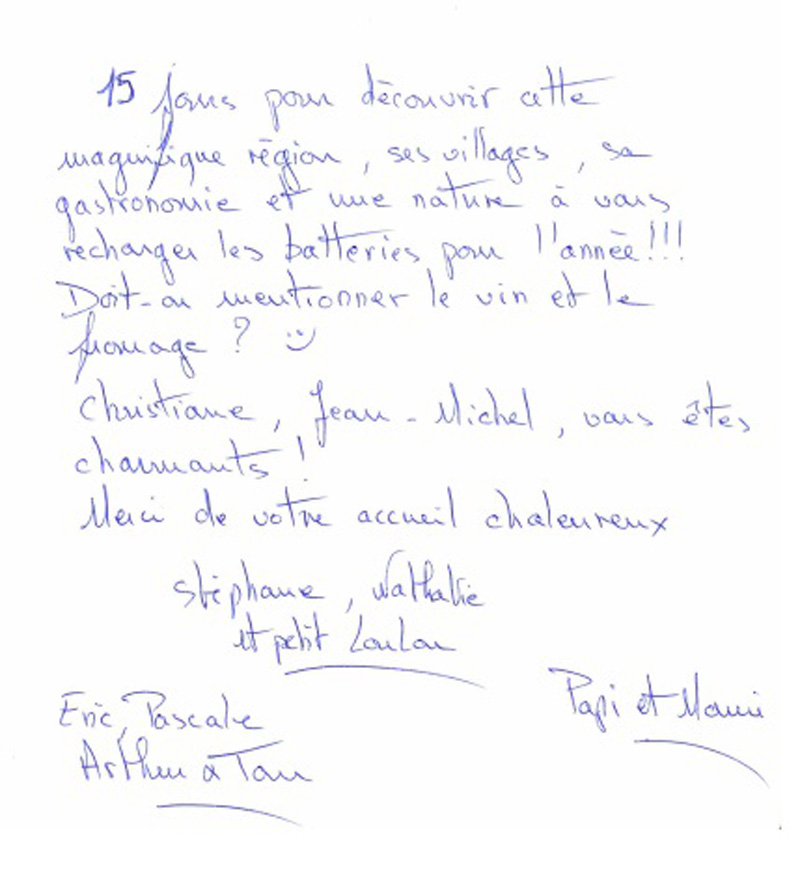 15 jours pour découvrir cette
magnifique région, ses villages, sa
gastronomie et une nature à vous
recharger les batteries pour l'année!!!
Doit-on mentionner le vin et le
fromage ? :)
Christiane, Jean-Michel, vous êtes
charmants !
Merci de votre accueil chaleureux
Stéphane, Nathalie
et petit Loulou
Papi et Mamie
Eric, Pascale
Arthur & Tom